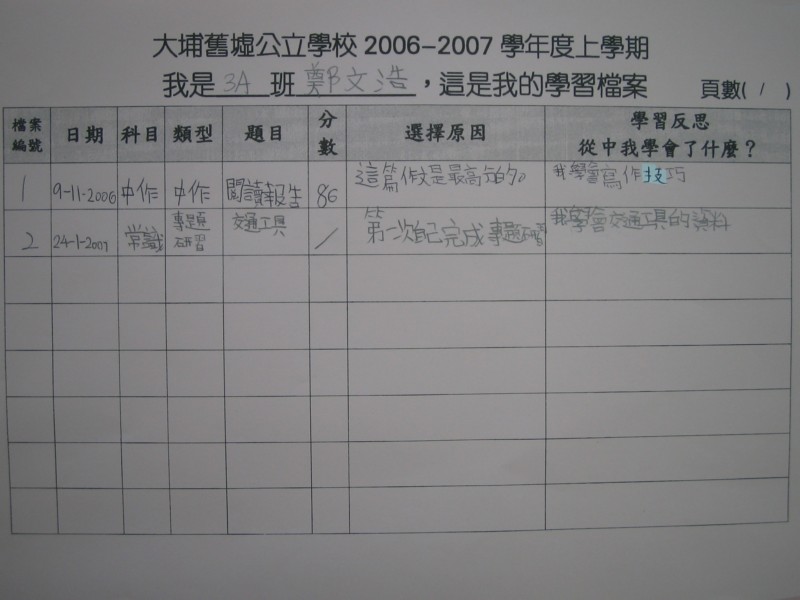 大埔舊墟公立學校 2006-2007 學年度上學期
我是 3A 班 鄭文浩 ，這是我的學習檔案 頁數( 1 )
檔案編號 日期 科目 類型 題目 分數 選擇原因 學習反思 從中我學會了什麼？
1 9-11-2006 中作 中作 閱讀報告 86 這篇作文是最高分的。 我學會寫作技巧
2 24-1-2007 常識 專題研習 交通工具 / 第一次自己完成專題研習 我學會交通工具的資料